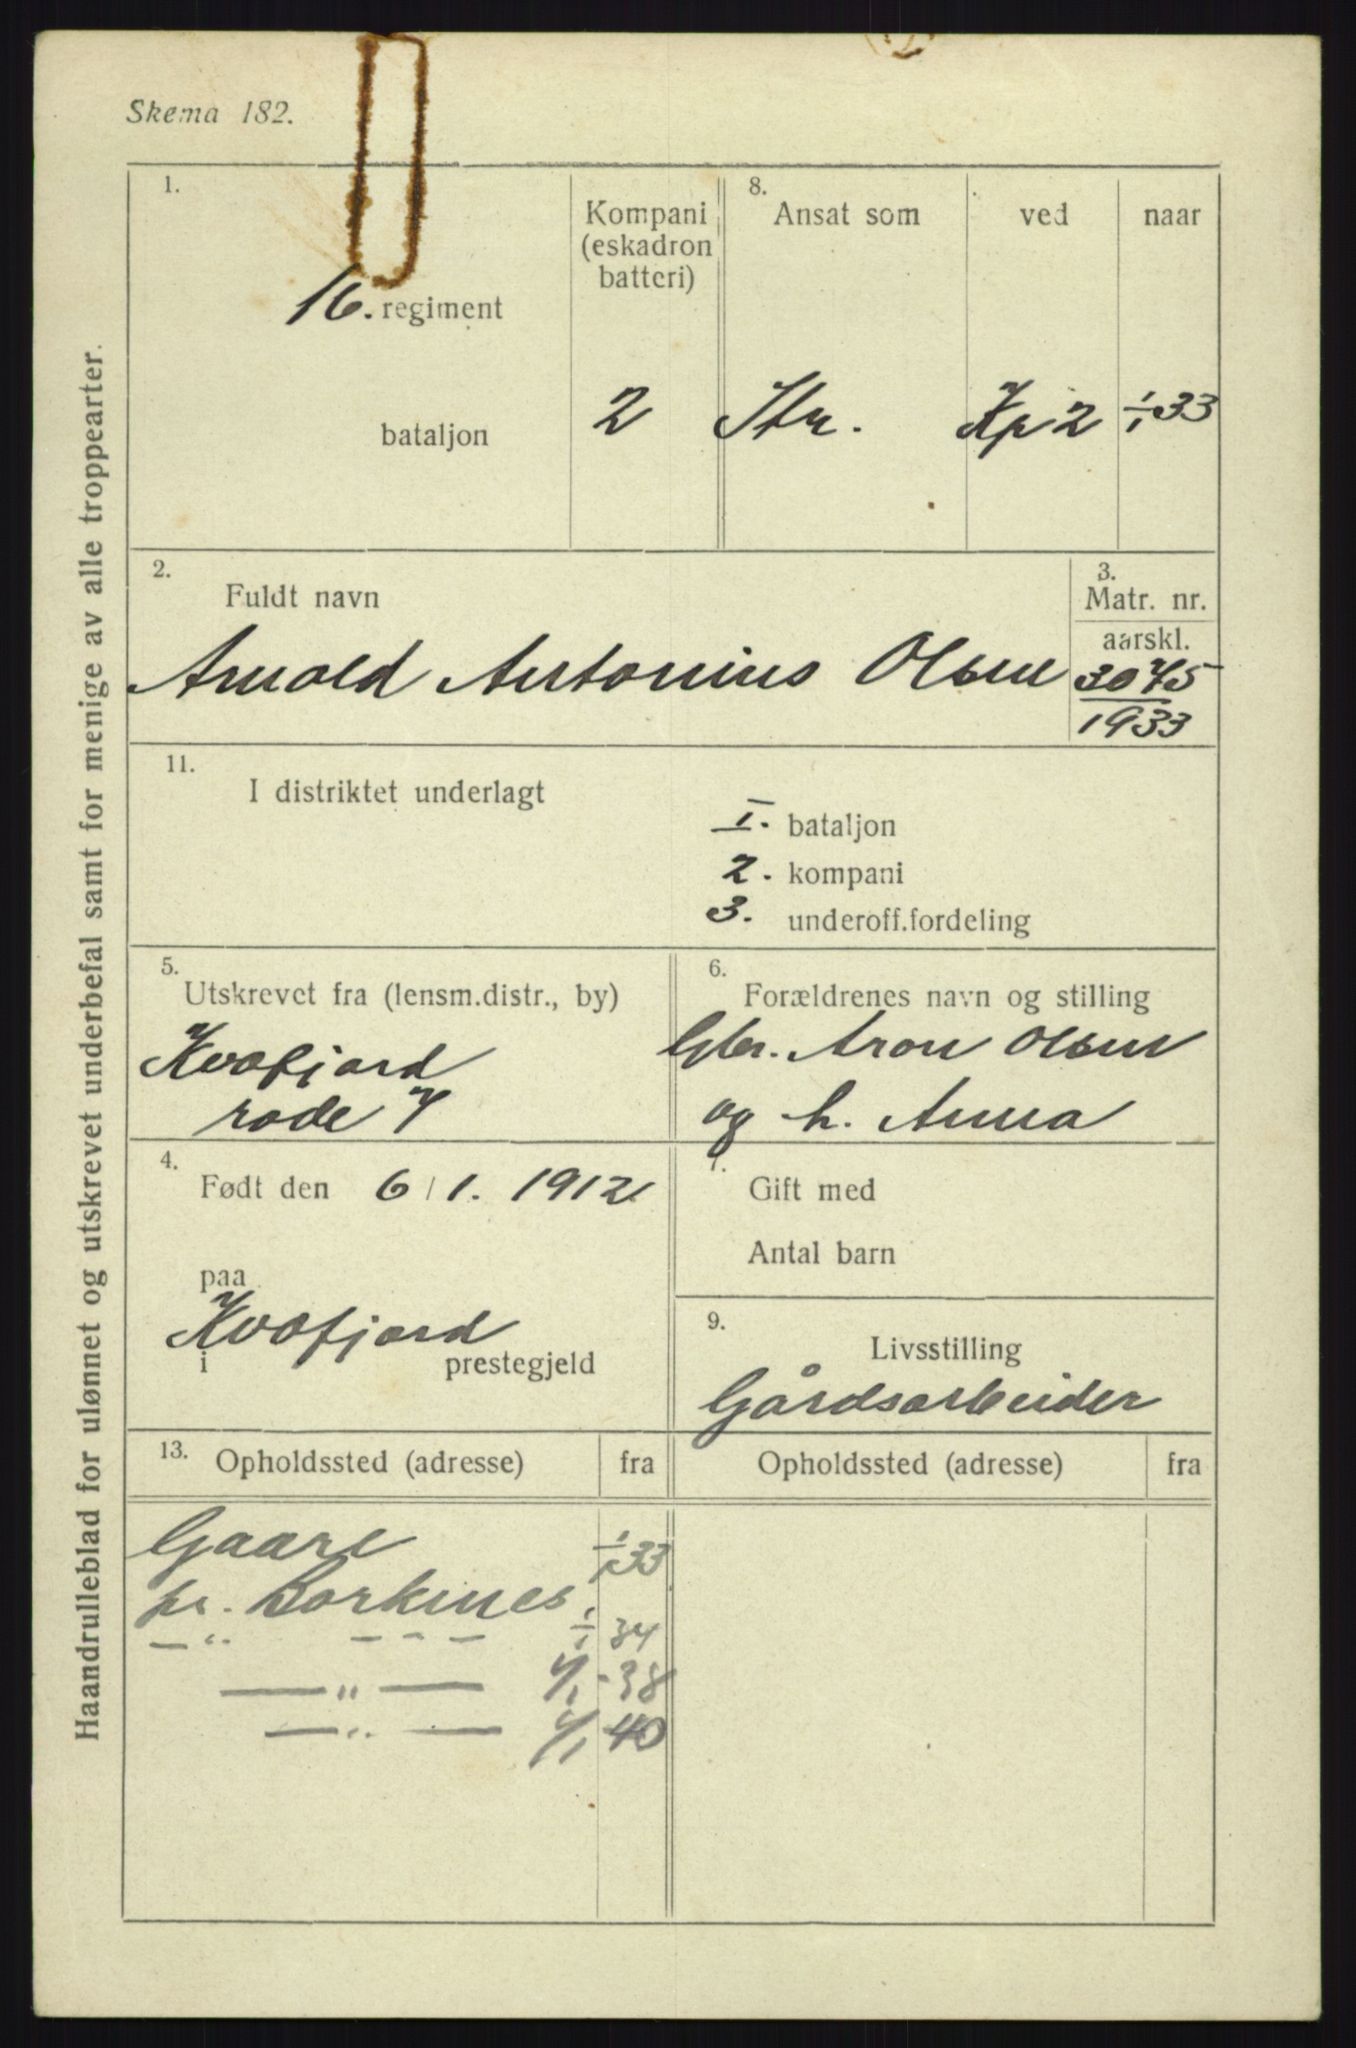 Skema 182.
Haandrulleblad for ulønnet og utskrevet underbefal samt for menige av alle troppearter.
1.
16. regiment
bataljon
Kompani
(eskadron
batteri)
2
8.
Ansat som
ved
naar
Str.
Kp 2
1/1 33
2.
Fuldt navn
Arnold Antonius Olsen
3.
Matr. nr.
aarskl.
3075
1933
11.
I distriktet underlagt
I. bataljon
2. kompani
3. underoff.fordeling
5.
Utskrevet fra (lensm.distr., by)
Kvæfjord
rode 7
6.
Forældrenes navn og stilling
Gbr. Aron Olsen
og h. Anna
4.
Født den 6/1. 1912
paa
Kvæfjord
i prestegjeld
7.
Gift med
Antal barn
9.
Livsstilling
Gårdsarbeider
13.
Opholdssted (adresse) fra
Opholdssted (adresse) fra
Gaare 1/1 33
pr. Borkenes
— " — — — 1/1 34
— " — 4/1-38
— " — 4/1 40